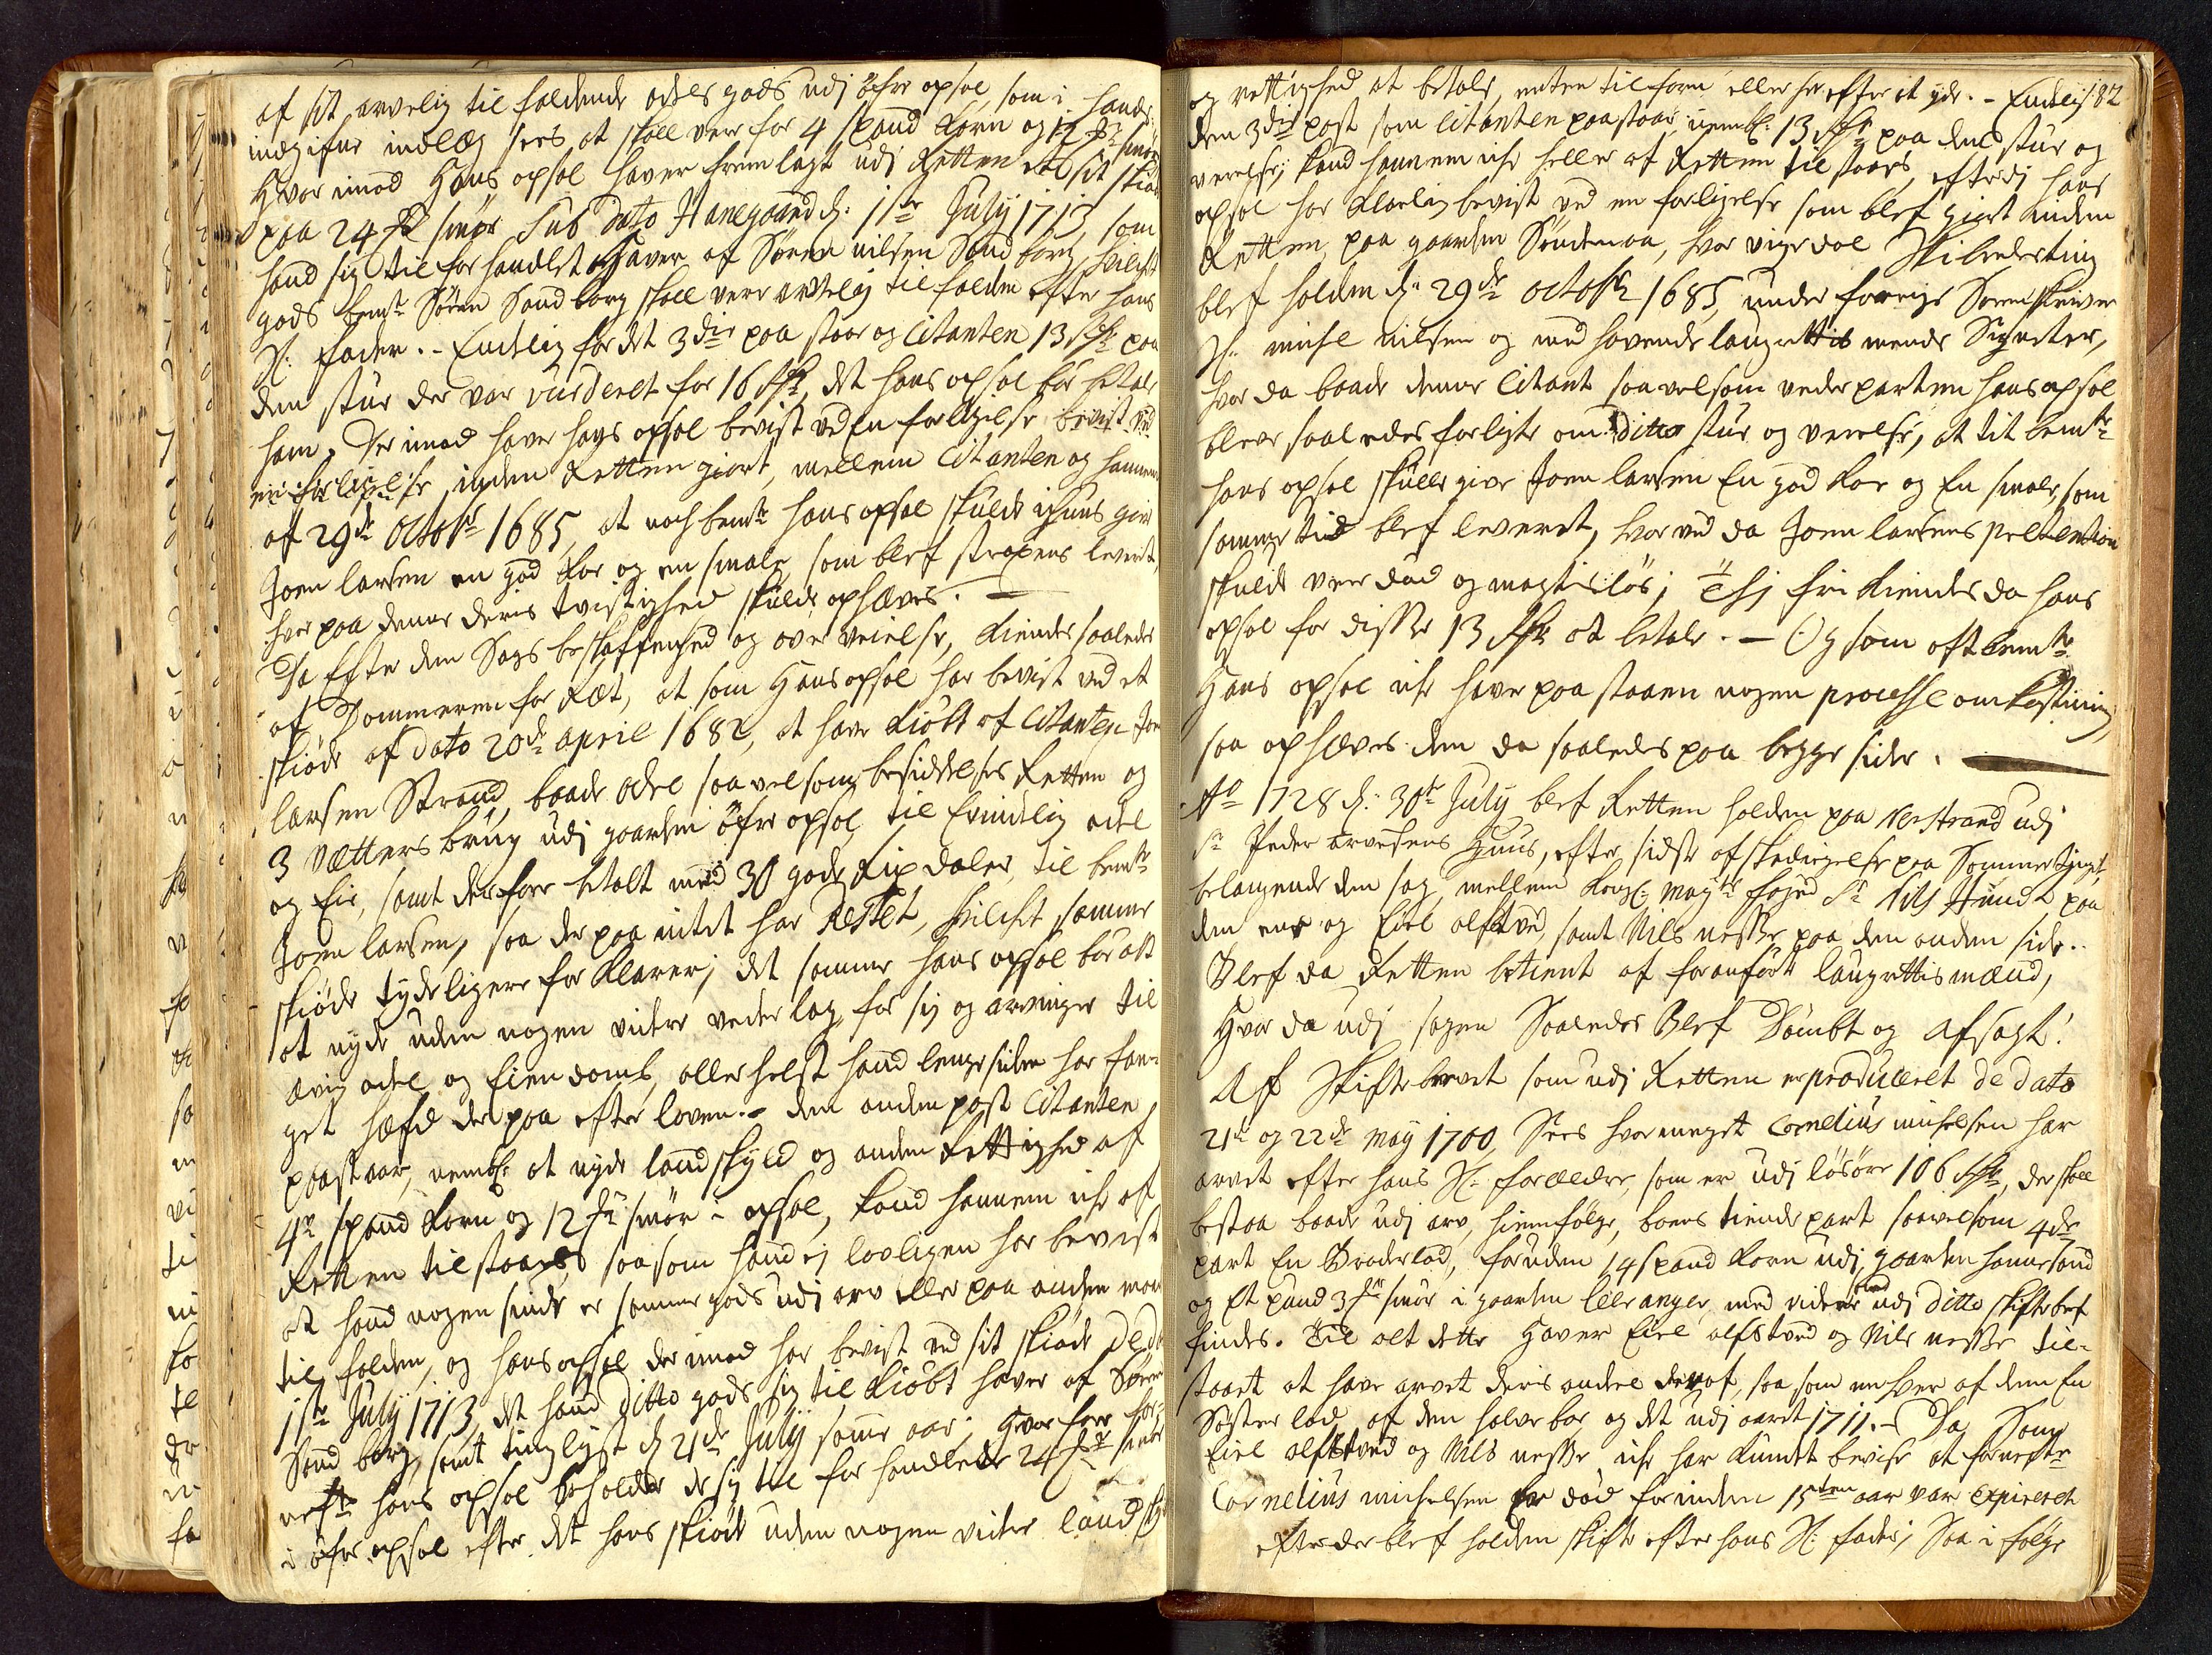 af sit arvelig til faldende odels gods udj öfre opsal, som i hands
indgifne indlæg sees at skall vere for 4 spand Korn og 12 smör
Hvor imod Hans opsal haver frem lagt udj Retten et sit skiöde
paa 24 smör sub dato Hanegaand d: 1ste July 1713, som
hand sig til for handlet haver af Sören nilsen Sandborg, hvilchet
gods bemte Sören Sandborg skall vere arvelig til falden efter hans
Sl: fader. - Endelig for det 3die paa staar og Citanten 13 paa
den stue der var vurderet for 16, det hans opsal bör betale
ham, der imod haver hans opsal bevist ved En forligelse bevist ved
en forligelse inden Retten giort, mellem Citanten og hannem
af 29de octobr 1685, at noch bemte hans opsal skulde give
Joen larsen en god Koe og en smale, som blef straxens leveret,
hvor paa denne deris tvistighed skulde ophæves. —
Da Efter den Sags beskaffenhed og over veielse, Kiendes saaledes
af Dommeren for Ræt, at som Hans opsal har bevist ved et
skiöde af dato 20de april 1682, at have Kiöbt af Citanten Joen
larsen Strand, baade odel saavelsom besiddelses Retten og
3 vetters brug udj gaarden öfre opsal, til Evindelig odel
og Eie, samt derfore betalt med 30 gode Rixdaler, til bemte
Joen larsen, saa der paa intet har Restet, hvilchet samme
skiöde tydeligere for Klarer; det samme hans opsal bör alt
at nyde uden nogen videre vederlag for sig og arvinger til
ævig odel og Eiendomb, allerhelst hand lenge siden har faa-
get hæfd der paa efter loven. - den anden post Citanten
paastaar, nembl: at nyde landskyld og anden Rettighed af
4re spand Korn og 12 smör i opsal, Kand hannem iche af
Retten tilstaaes, saasom hand ej lovligen har bevist
at hand nogen sinde er samme gods udj arv eller paa anden maade
til falden, og hans opsal der imod har bevist ved sit skiöde de dato
1ste July 1713, at hand ditto gods sig til Kiöbt haver af Sören
Sandborg, samt tinglyst d 21de July samme aar; Hvor fore for-
nefte hans opsal beholder de sig til for handlede 24 smör
i öfre opsal efter det hans skiöde uden nogen vider landskyld
og rettighed at betale, enten tilforn eller her efter at yde. - Endelig 82
den 3die post som Citanten paastaar, nembl: 13 paa den stue og
verelse, Kand hannem iche heller af Retten til staaes, efterdj hans
opsal har Klarlig bevist ved en forligelse som blef giort inden
Retten paa gaarden Söndenaa, hvor vigedal skibredeting
blef holden d: 29de octobr 1685, under forrige Sorenskriver
Hr michel nilsen og med havende laugrettis mends Signeter,
hvor da baade denne Citant saavelsom vederparten hans opsal
bleve saaledes forligte om ditto stue og verelse, at tit bemte
hans opsal skulle give Joen larsen En god Koe og En smale, som
samme tid blef leveret, hvor ved da Joen larsens pretention
skulde veere död og magtislös; frikiendes da hans
opsal for disse 13 at betale. — Og som oft bemte
Hans opsal iche haver paa staaen nogen processe omkostning,
saa ophæves den da saaledes paa begge sider.
Ao 1728 d: 30te July blef Retten holden paa Nerstrand udj
Sr Peder arvesens Huus, efter sidste afskedigelse paa Sommertinget,
belangende den sag, mellem Kongl: mayts foged Sr Nils Hund paa
den ene og Eiel alfstved, samt Nils nesse paa den anden side.
Blef da Retten betient af foranförte laugrettismænd,
Hvor da udj sagen Saaledes Blef Dömbt og afsagt:
Af Skiftebrevet som udj Retten er produceret de dato
21de og 22de may 1700, Sees hvormeget Cornelius michelsen har
arvet efter hans Sl: forældre, som er udj lösöre 106, der skall
bestaa baade udj arv, hiemfölge, boens tiende part saavelsom 4de
part En Broderlod, foruden 14 spand Korn udj gaarden hannesand
og Et pund 3 smör i gaarden leeranger, med videre udj ditto skiftebref
findes. Til alt dette Haver Eiel alfstved og Nils nesse til-
staaet at have arvet deris andeel deraf, saa som en hver af dem En
Systerlod af den halve boe og det udj aaret 1711. - Da Som
Eiel alfstved og Nils nesse iche har Kundet bevise at fornefte
Cornelius michelsen Er död forinden 15ten aar var expireret
efter der blef holden skifte efter hans Sl: fader, Saa i fölge